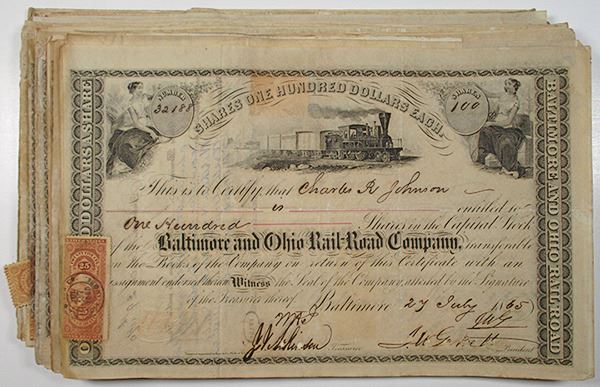 NUMBER
32188
SHARES
100
SHARES ONE HUNDRED DOLLARS EACH.
DOLLARS A SHARE
BALTIMORE AND OHIO RAIL-ROAD
This is to Certify, that Charles R Johnson
is entitled to
One Hundred Shares in the Capital Stock
of the Baltimore and Ohio Rail-Road Company, transferable
on the Books of the Company on return of this Certificate with an
assignment endorsed thereon Witness the Seal of the Company, attested by the Signature
of the Treasurer thereof Baltimore 27 July 1865
Treasurer
President
25